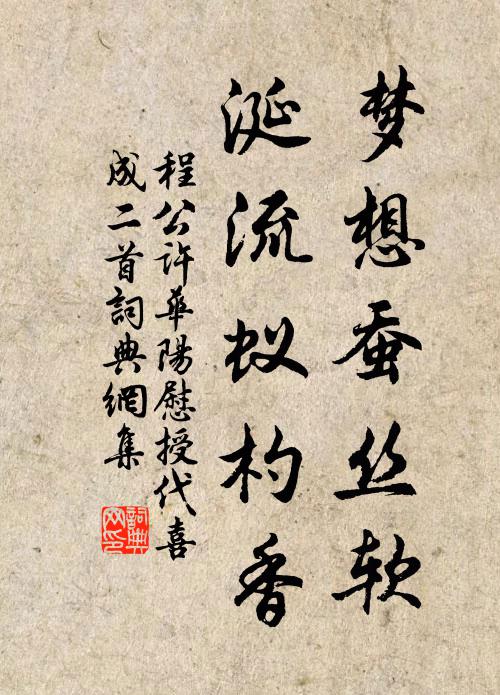 梦想蚕丝软
涎流蚁杓香
程公许华陽慰授代喜
成二首詞典網集
詞典网印